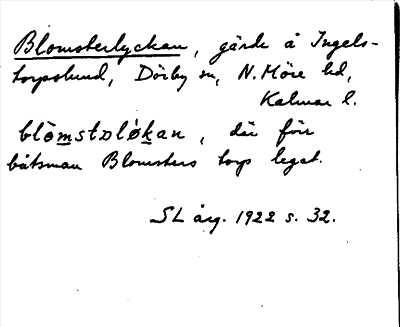 Blomsterlyckan, gärde å Ingels-
torpslund, Dörby sn, N. Möre hd,
Kalmar l.
blòmstəlø̀kan, där förr
båtsman Blomsters torp legat.
SL årg. 1922 s. 32.